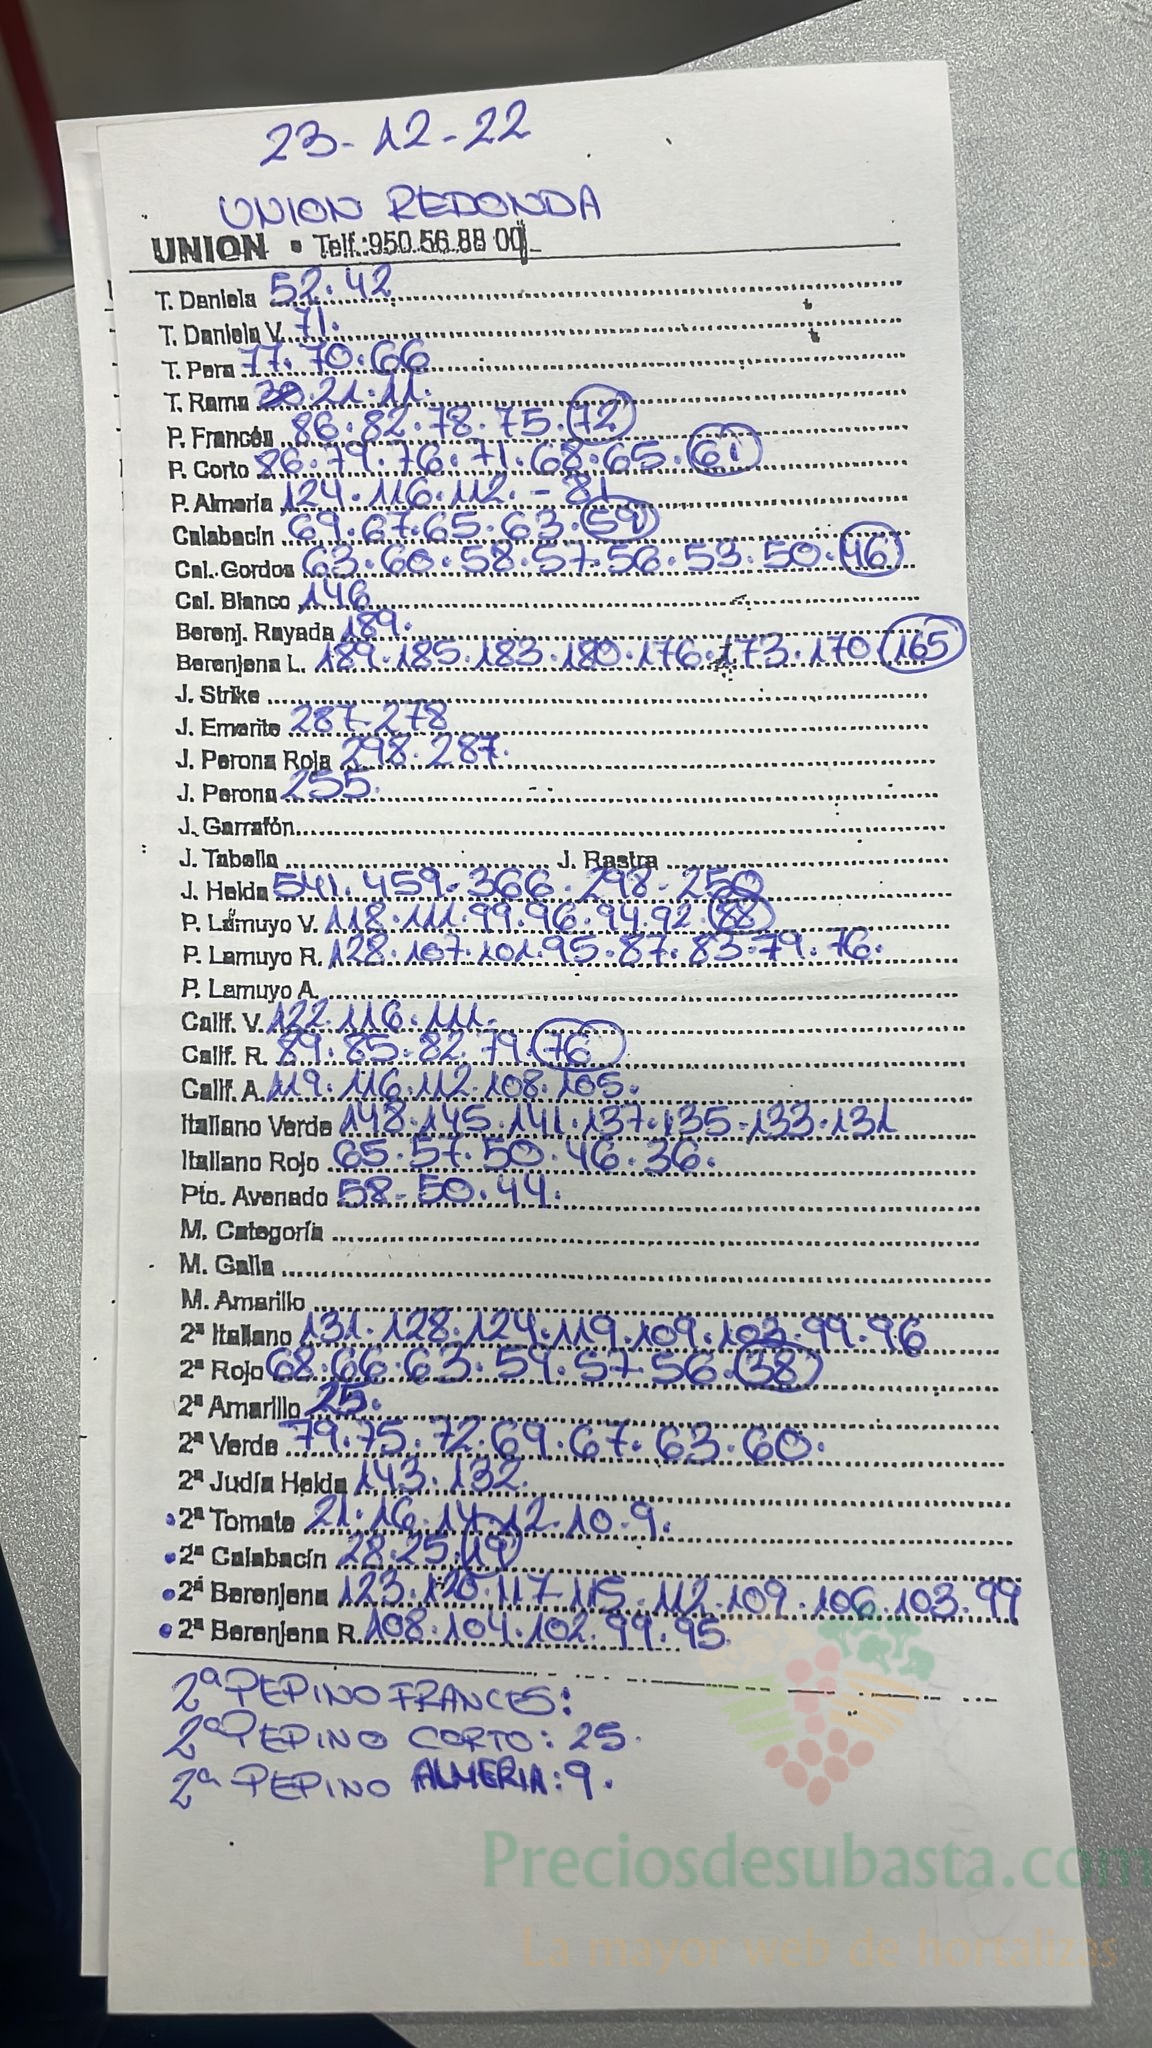 23-12-22
UNION REDONDA
UNION • Telf.:950.56.88 00
T. Daniela 52.42
T. Daniela V. 71.
T. Pera 77.70.66
T. Rama 30.21.11.
P. Francés 86.82.78.75.72
P. Corto 86.79.76.71.68.65.61
P. Almería 124.116.112.-81
Calabacín 69.67.65.63.59
Cal. Gordos 63.60.58.57.56.53.50.46
Cal. Blanco 146
Berenj. Rayada 189.
Berenjena L. 189.185.183.180.176.173.170.165
J. Strike
J. Emerite 287.278
J. Perona Roja 298.287.
J. Perona 255.
J. Garrafón
J. Tabella J. Rastra
J. Helda 541.459.366.298.250
P. Lamuyo V. 118.111.99.96.94.92.88
P. Lamuyo R. 128.107.101.95.87.83.79.76.
P. Lamuyo A.
Calif. V. 122.116.111.
Calif. R. 89.85.82.79.76
Calif. A. 119.116.112.108.105.
Italiano Verde 148.145.141.137.135.133.131
Italiano Rojo 65.57.50.46.36.
Pto. Avenado 58.50.44.
M. Categoría
M. Galia
M. Amarillo
2ª Italiano 131.128.124.119.109.103.99.96
2ª Rojo 68.66.63.59.57.56.38
2ª Amarillo 25.
2ª Verde 79.75.72.69.67.63.60.
2ª Judía Helda 143.132.
•2ª Tomate 21.16.14.12.10.9.
•2ª Calabacín 28.25.19
•2ª Berenjena 123.120.117.115.112.109.106.103.99
•2ª Berenjena R. 108.104.102.99.95.
2ª PEPINO FRANCES:
2ª PEPINO CORTO: 25.
2ª PEPINO ALMERIA: 9.
Preciosdesubasta.com
La mayor web de hortalizas